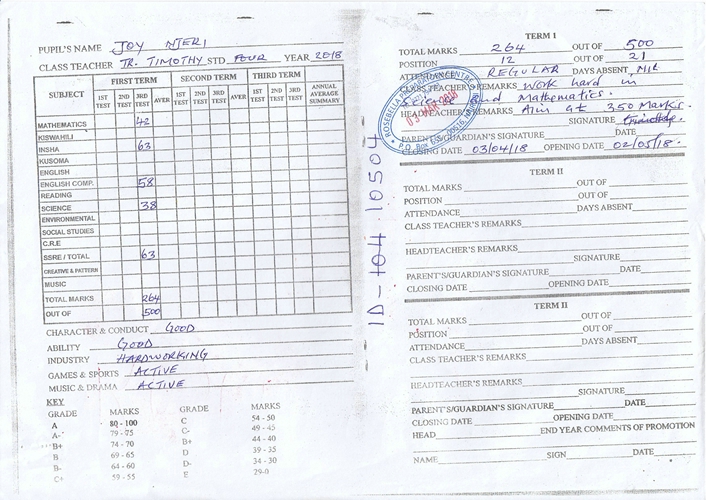 PUPIL'S NAME JOY NJERI
CLASS TEACHER TR. TIMOTHY STD FOUR YEAR 2018
SUBJECT
FIRST TERM SECOND TERM THIRD TERM
1ST TEST 2ND TEST 3RD TEST AVER 1ST TEST 2ND TEST 3RD TEST AVER 1ST TEST 2ND TEST 3RD TEST ANNUAL AVERAGE SUMMARY
MATHEMATICS 42
KISWAHILI
INSHA 63
KUSOMA
ENGLISH
ENGLISH COMP. 58
READING
SCIENCE 38
ENVIRONMENTAL
SOCIAL STUDIES
C.R.E
SSRE / TOTAL 63
CREATIVE & PATTERN
MUSIC
TOTAL MARKS 264
OUT OF 500
CHARACTER & CONDUCT GOOD
ABILITY GOOD
INDUSTRY HARDWORKING
GAMES & SPORTS ACTIVE
MUSIC & DRAMA ACTIVE
KEY
GRADE MARKS GRADE MARKS
A 80 - 100 C 54 - 50
A- 79 - 75 C- 49 - 45
B+ 74 - 70 B+ 44 - 40
B 69 - 65 D 39 - 35
B- 64 - 60 D- 34 - 30
C+ 59 - 55 E 29-0
ID-104 10504
TERM 1
TOTAL MARKS 264 OUT OF 500
POSITION 12 OUT OF 21
ATTENDANCE REGULAR DAYS ABSENT NIL
CLASS TEACHER'S REMARKS Work hard in
and Mathematics.
HEADTEACHER'S REMARKS Aim at 350 Marks.
SIGNATURE
PARENT'S/GUARDIAN'S SIGNATURE DATE
CLOSING DATE 03/04/18 OPENING DATE 02/05/18.
ROSEBELLA CENTRE
P.O. Box
TERM II
TOTAL MARKS OUT OF
POSITION OUT OF
ATTENDANCE DAYS ABSENT
CLASS TEACHER'S REMARKS
HEADTEACHER'S REMARKS
SIGNATURE
PARENT'S/GUARDIAN'S SIGNATURE DATE
CLOSING DATE OPENING DATE
TERM II
TOTAL MARKS OUT OF
POSITION OUT OF
ATTENDANCE DAYS ABSENT
CLASS TEACHER'S REMARKS
HEADTEACHER'S REMARKS
SIGNATURE
PARENT'S/GUARDIAN'S SIGNATURE DATE
CLOSING DATE OPENING DATE
HEAD END YEAR COMMENTS OF PROMOTION
NAME SIGN DATE